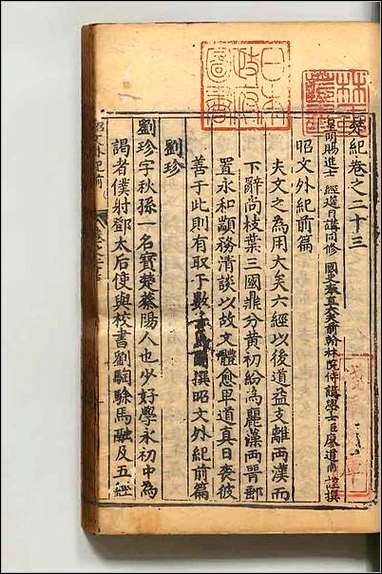 楚紀卷之二十三
皇明賜進士 經筵日講同修 國史奉直大夫前翰林院侍講學士臣廖道南謹撰
昭文外紀前篇
夫文之為用大矣六經以後道益支離兩漢而
下辭尚枝葉三國鼎分黃初紛為麗藻兩晉鄙
置永和顓務清談以故文體愈卑道真日喪彼
善于此則有取下數 撰昭文外紀前篇
劉珍
劉珍字秋孫一名寶楚蔡陽人也少好學永初中為
謁者僕射鄧太后使與校書劉騊駼馬融及五經
日本
政府
圖書